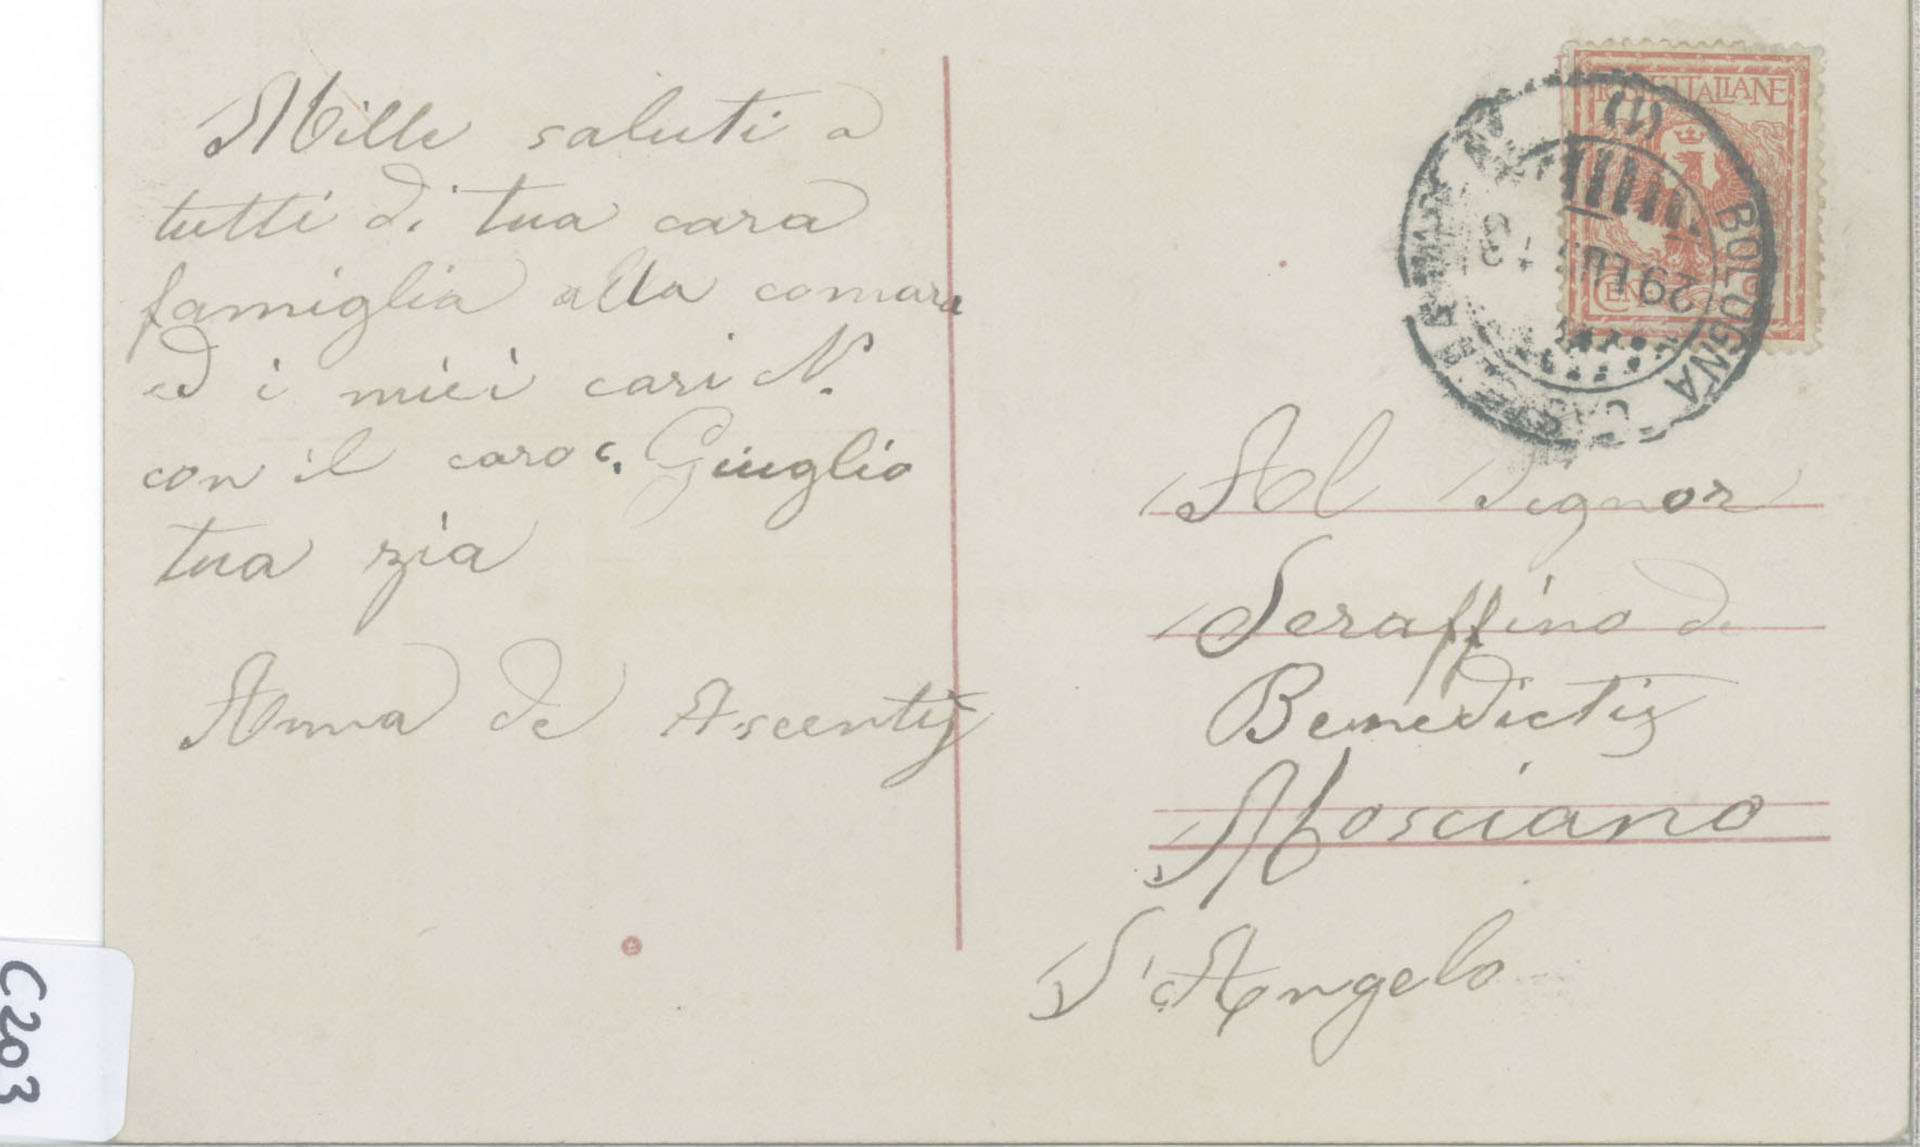 Mille saluti a
tutti di tua cara
famiglia alla comara
ed i miei cari N.
con il caro c. Giuglio
tua zia
Anna de Ascentiis
POSTE ITALIANE
BOLOGNA
29 LU 13
CEN
Al Signor
Seraffino de
Benedictis
Mosciano
S. Angelo
C203